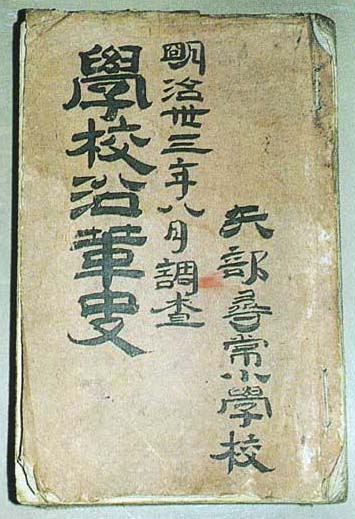 矢部尋常小學校
明治丗三年八月調査
學校沿革史